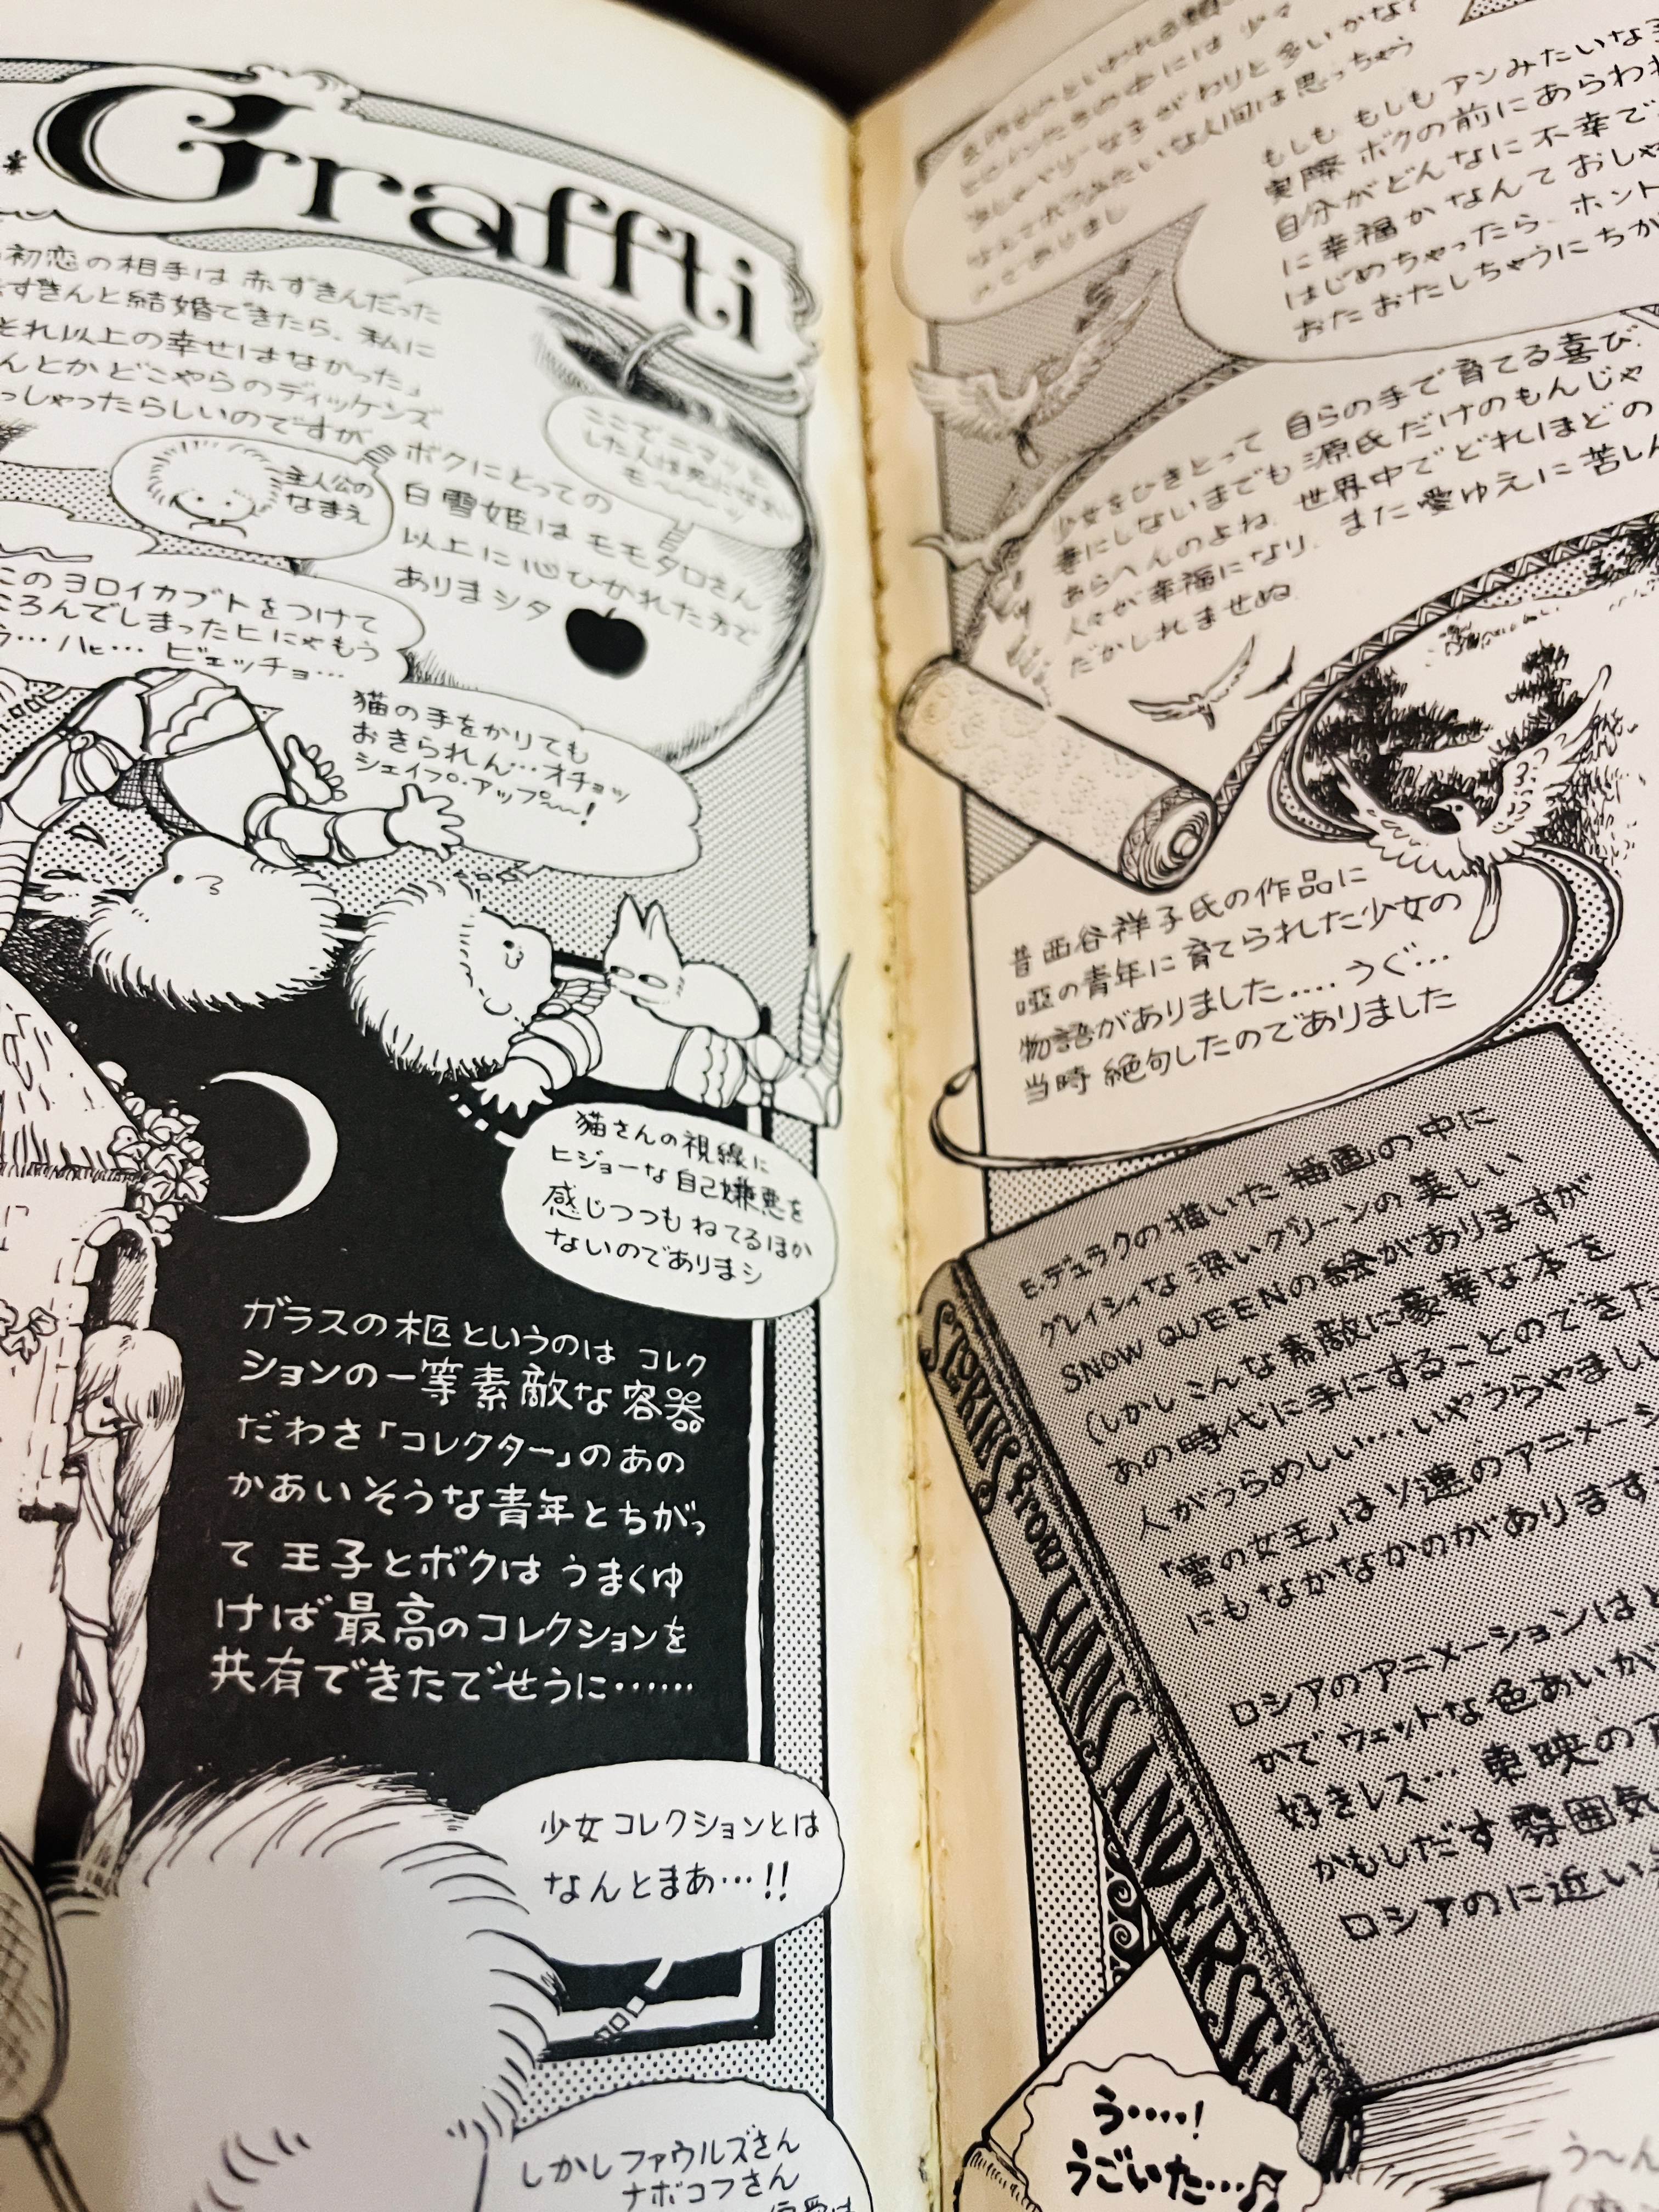 Graffti
初恋の相手は赤ずきんだった
ずきんと結婚できたら、私に
それ以上の幸せはなかった」
んとかどこやらのディッケンズ
っしゃったらしいのですが
主人公の
なまえ
ここでニマッと
ボクにとっての
白雪姫はモモタロさん
以上に心ひかれた方で
ありまシタ
このヨロイカブトをつけて
ころんでしまったヒにゃもう
う…ハヒ…ビェッチョ…
猫の手をかりても
おきられん…オチョッ
シェイプ・アップ〜〜!
猫さんの視線に
ヒジョーな自己嫌悪を
感じつつもねてるほか
ないのでありまシ
ガラスの柩というのは コレク
ションの一等素敵な容器
だわさ「コレクター」のあの
かあいそうな青年とちがっ
て 王子とボクは うまくゆ
けば最高のコレクションを
共有できたでせうに……
少女コレクションとは
なんとまあ…!!
しかしファウルズさん
ナボコフさん
もしも もしもアンみたいな
実際 ボクの前にあらわれ
自分がどんなに不幸で
に幸福かなんておしゃ
はじめちゃったら、ホント
おたおたしちゃうにちが
少女をひきとって 自らの手で育てる喜び、
妻にしないまでも源氏だけのもんじゃ
あらへんのよね、世界中でどれほどの
人々が幸福になり、また愛ゆえに苦しん
だかしれませぬ
昔西谷祥子氏の作品に
唖の青年に育てられた少女の
物語がありました....うぐ…
当時 絶句したのでありました
E・デュラクの描いた挿画の中に
グレイシィな深いグリーンの美しい
SNOW QUEENの絵がありますが
(しかしこんな素敵に豪華な本を
あの時代に手にすることのできた
人がうらめしい…いやうらやましい
「雪の女王」はソ連のアニメーシ
にもなかなかのがあります
ロシアのアニメーションはど
かで ウェットな色あいが
好きレス… 東映の
かもしだす雰囲気
ロシアのに近い
STORIES from HANS ANDERSEN
う....!
うごいた...♫
う〜ん